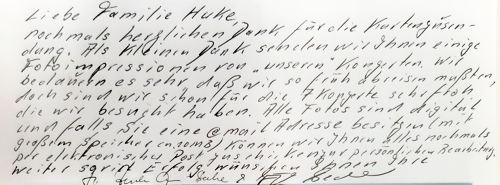 Liebe Familie Huke,
nochmals herzlichen Dank für die Kartenzusen-
dung. Als kleinen Dank senden wir Ihnen einige
Fotoimpressionen von "unseren" Konzerten. Wir
bedauern es sehr daß wir so früh abreisen mußten,
doch sind wir schon für die 7 Konzerte
die wir besucht haben. Alle Fotos sind digital
und falls Sie eine @mail Adresse besitzen (mit
großem Speicher) können wir Ihnen alles nochmals
per elektronischer Post zuschicken zur persönlichen Bearbeitung.
Weiter Erfolg wünschen Ihnen Ihre